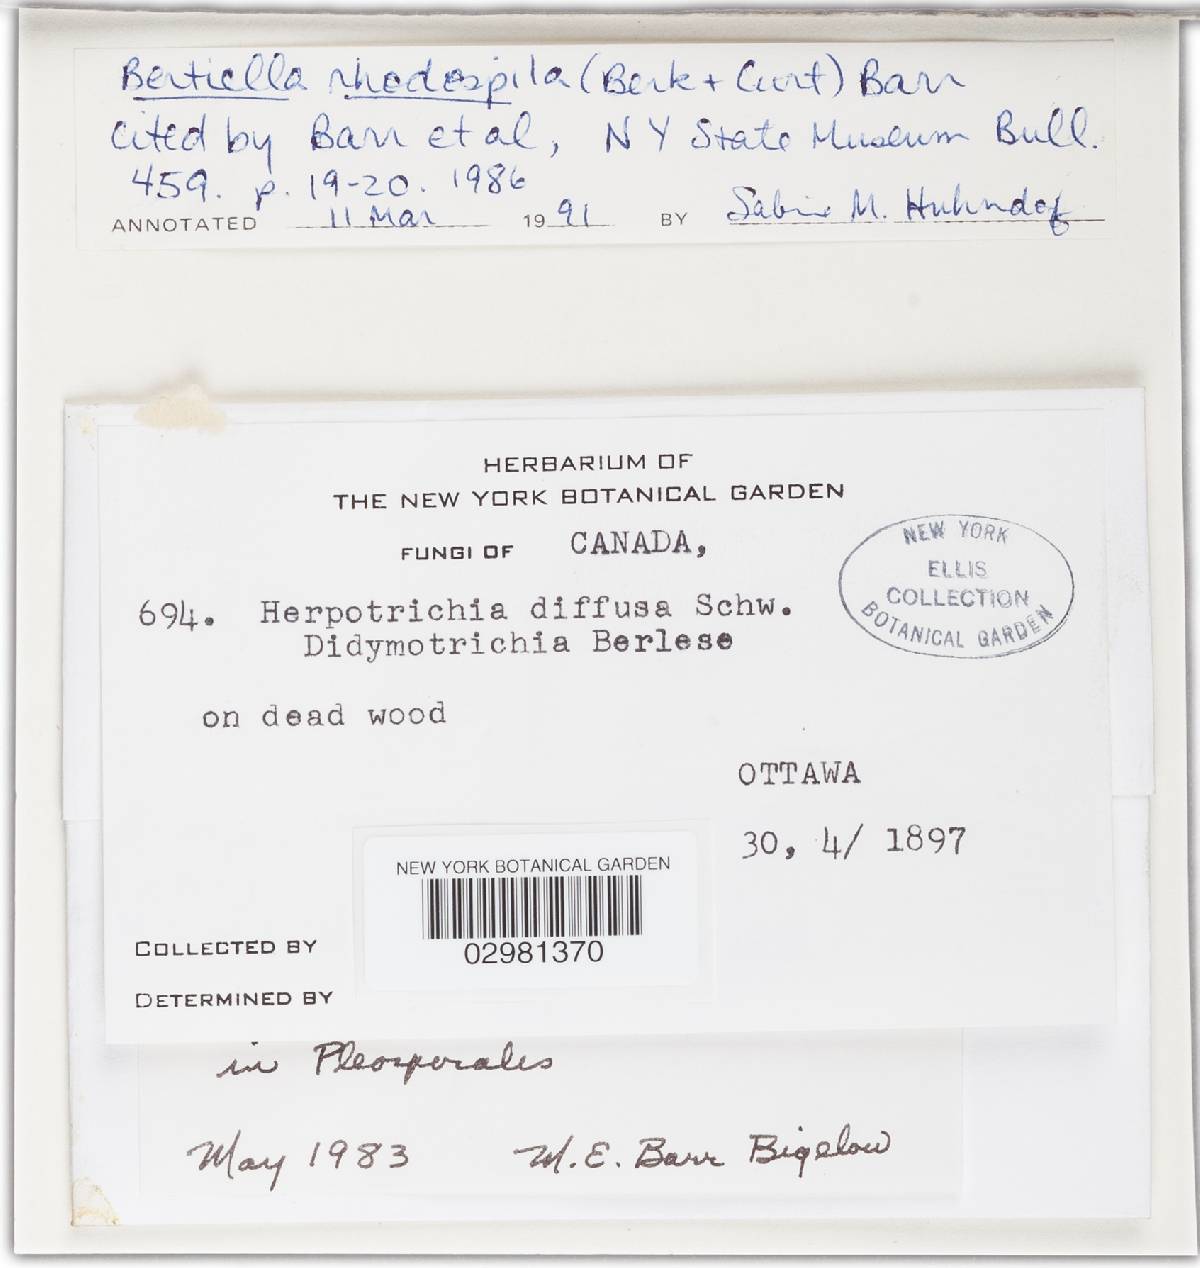 Bertiella rhodospila (Berk + Curt) Barr
cited by Barr et al, NY State Museum Bull.
459. p. 19-20. 1986
ANNOTATED 11 Mar 1991 BY Sabine M. Huhndorf
HERBARIUM OF
THE NEW YORK BOTANICAL GARDEN
FUNGI OF CANADA,
NEW YORK
ELLIS
COLLECTION
BOTANICAL GARDEN
694. Herpotrichia diffusa Schw.
Didymotrichia Berlese
on dead wood
OTTAWA
30, 4/ 1897
NEW YORK BOTANICAL GARDEN
02981370
COLLECTED BY
DETERMINED BY
in Pleosporales
May 1983 M.E. Barr Bigelow